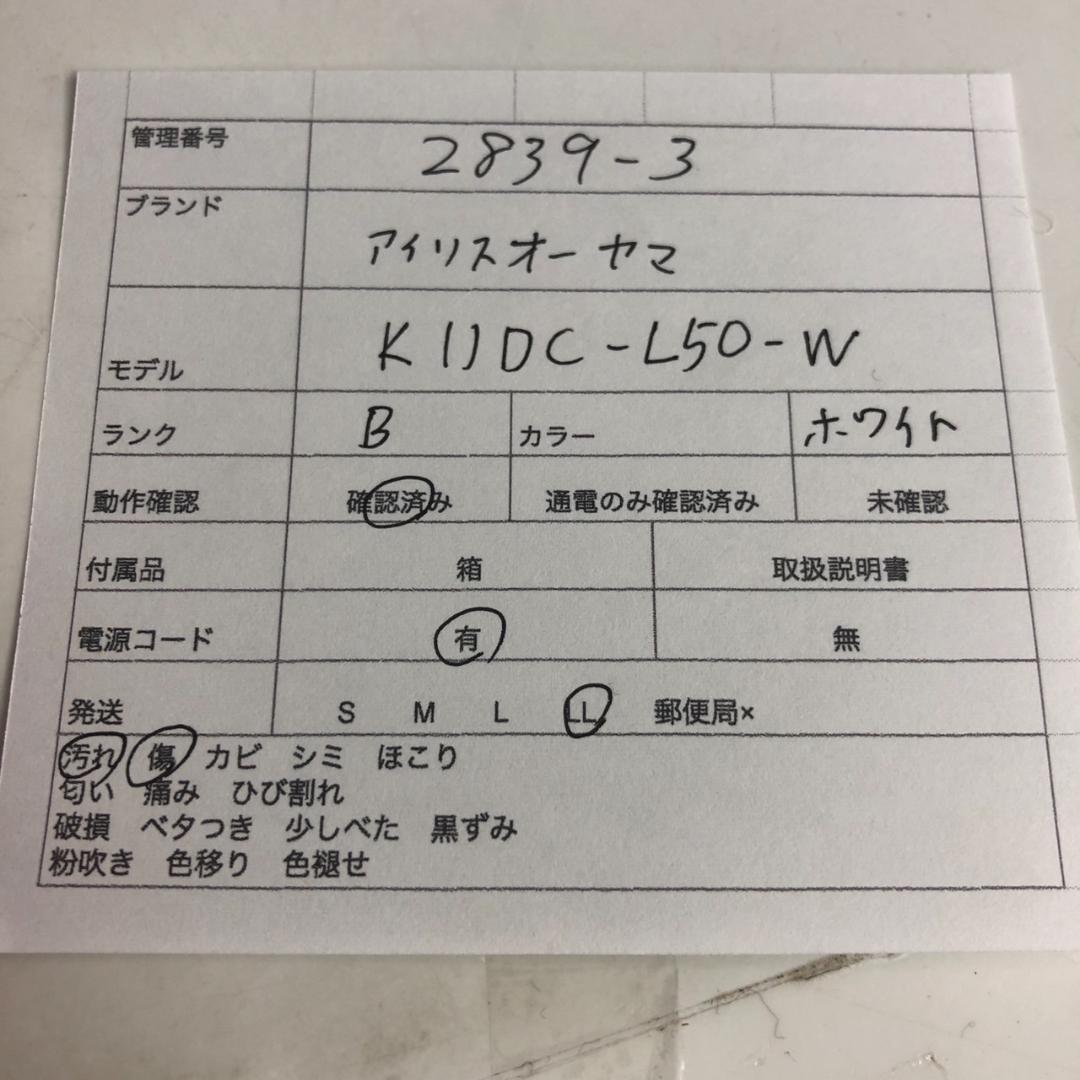 管理番号 2839-3
ブランド アイリスオーヤマ
モデル KIJDC-L50-W
ランク B カラー ホワイト
動作確認 確認済み 通電のみ確認済み 未確認
付属品 箱 取扱説明書
電源コード 有 無
発送 S M L LL 郵便局×
汚れ 傷 カビ シミ ほこり
匂い 痛み ひび割れ
破損 ベタつき 少しべた 黒ずみ
粉吹き 色移り 色褪せ